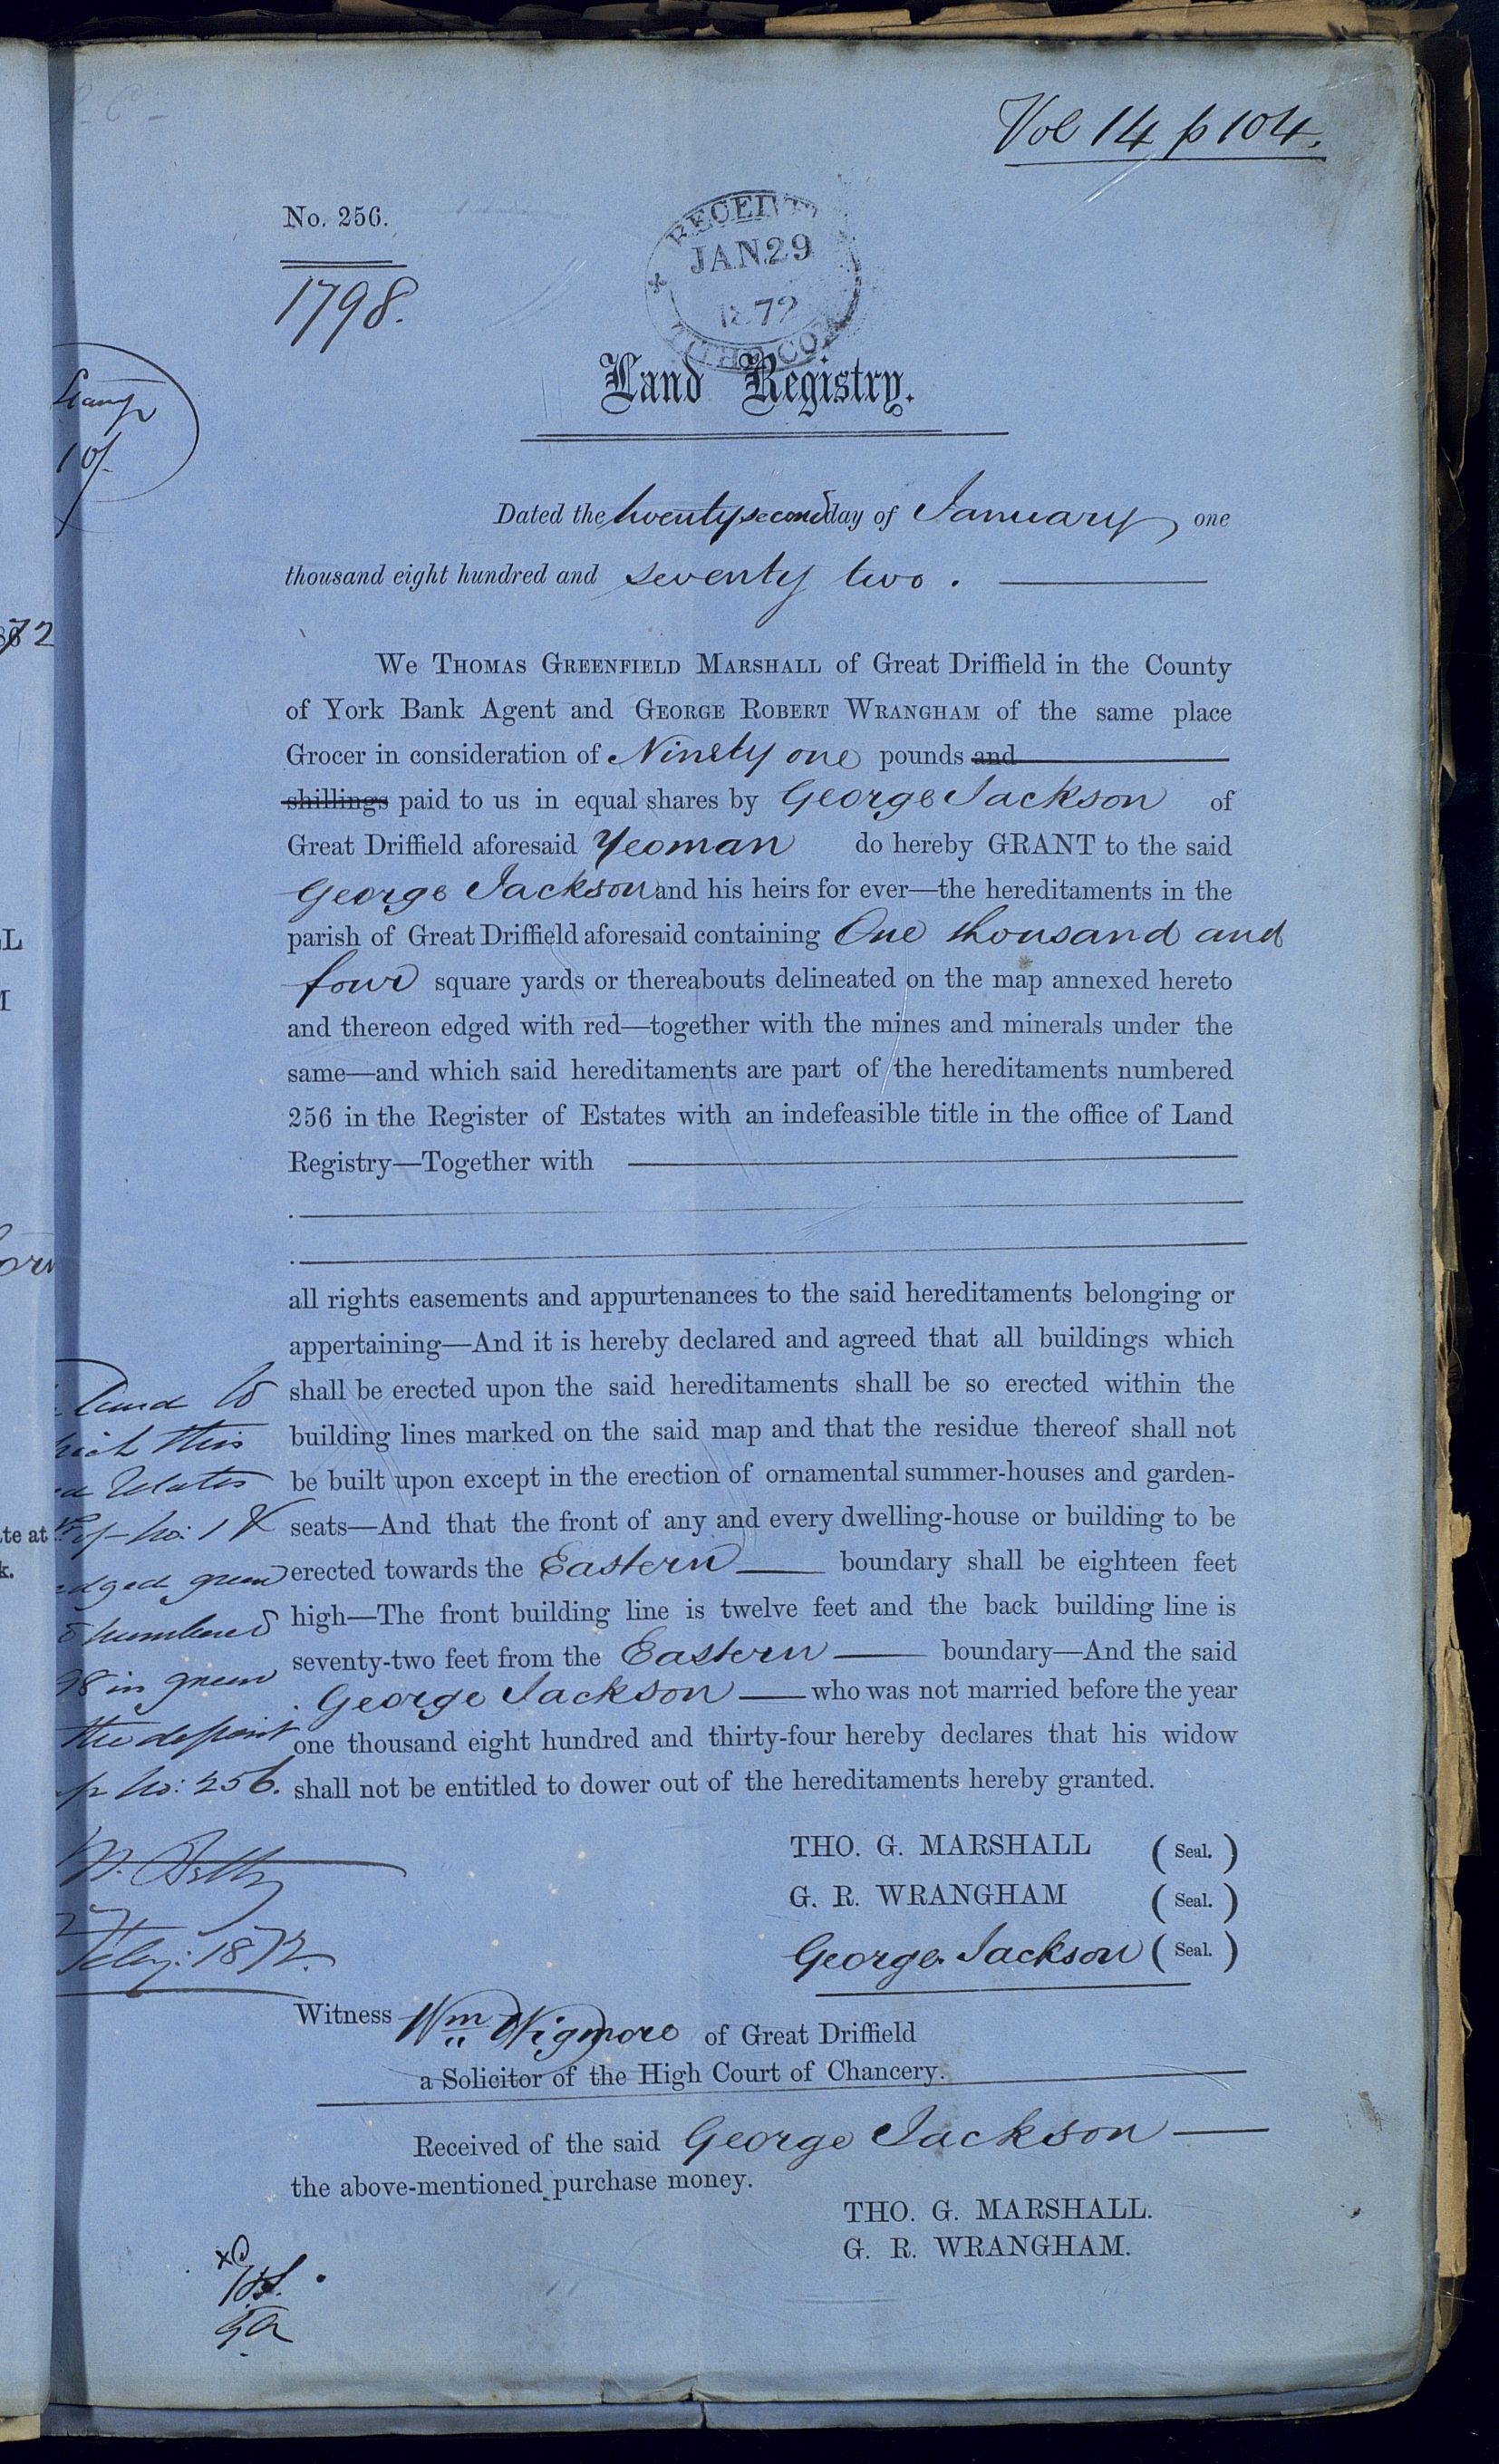 Vol 14 p 104.
No. 256.
1798.
RECEIVED
JAN 29
1872
Land Registry.
Stamp
10/.
Dated the twenty second day of January one
thousand eight hundred and seventy two.
72
We THOMAS GREENFIELD MARSHALL of Great Driffield in the County
of York Bank Agent and GEORGE ROBERT WRANGHAM of the same place
Grocer in consideration of Ninety one pounds and
shillings paid to us in equal shares by George Jackson of
Great Driffield aforesaid Yeoman do hereby GRANT to the said
George Jackson and his heirs for ever—the hereditaments in the
parish of Great Driffield aforesaid containing One thousand and
four square yards or thereabouts delineated on the map annexed hereto
and thereon edged with red—together with the mines and minerals under the
same—and which said hereditaments are part of the hereditaments numbered
256 in the Register of Estates with an indefeasible title in the office of Land
Registry—Together with
all rights easements and appurtenances to the said hereditaments belonging or
appertaining—And it is hereby declared and agreed that all buildings which
shall be erected upon the said hereditaments shall be so erected within the
building lines marked on the said map and that the residue thereof shall not
be built upon except in the erection of ornamental summer-houses and garden-
seats—And that the front of any and every dwelling-house or building to be
erected towards the Eastern boundary shall be eighteen feet
high—The front building line is twelve feet and the back building line is
seventy-two feet from the Eastern boundary—And the said
George Jackson who was not married before the year
one thousand eight hundred and thirty-four hereby declares that his widow
shall not be entitled to dower out of the hereditaments hereby granted.
Land to
which this
relates
of No: 1 &
edged green
numbered
98 in green
the deposit
No: 256.
Feby: 1872.
THO. G. MARSHALL (Seal.)
G. R. WRANGHAM (Seal.)
George Jackson (Seal.)
Witness Wm Wigmore of Great Driffield
a Solicitor of the High Court of Chancery.
Received of the said George Jackson
the above-mentioned purchase money.
THO. G. MARSHALL.
G. R. WRANGHAM.